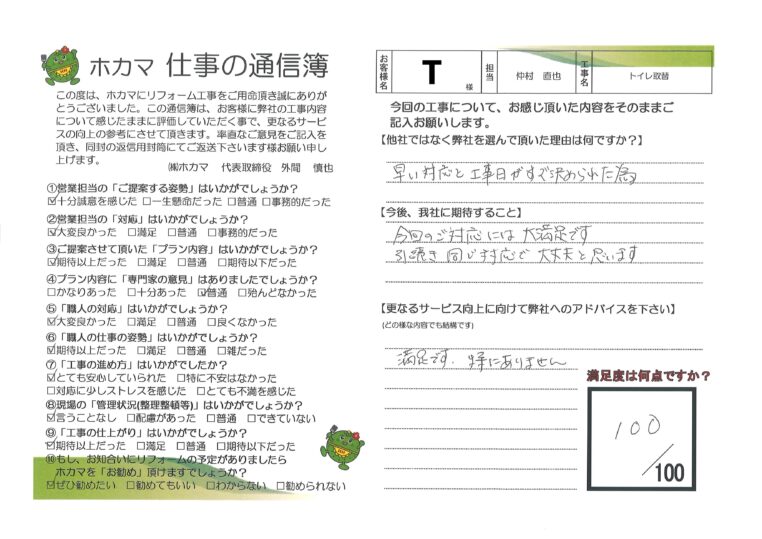 ホカマ 仕事の通信簿
この度は、ホカマにリフォーム工事をご用命頂き誠にありが
とうございました。この通信簿は、お客様に弊社の工事内容
について感じたままに評価していただく事で、更なるサービ
スの向上の参考にさせて頂きます。率直なご意見をご記入を
頂き、同封の返信用封筒にてご返送下さいます様お願い申し
上げます。
㈱ホカマ 代表取締役 外間 慎也
①営業担当の「ご提案する姿勢」はいかがでしょうか?
☑十分誠意を感じた □一生懸命だった □普通 □事務的だった
②営業担当の「対応」はいかがでしょうか?
☑大変良かった □満足 □普通 □事務的だった
③ご提案させて頂いた「プラン内容」はいかがでしょうか?
☑期待以上だった □満足 □普通 □期待以下だった
④プラン内容に「専門家の意見」はありましたでしょうか?
□かなりあった □十分あった ☑普通 □殆んどなかった
⑤「職人の対応」はいかがでしょうか?
☑大変良かった □満足 □普通 □良くなかった
⑥「職人の仕事の姿勢」はいかがでしょうか?
☑期待以上だった □満足 □普通 □雑だった
⑦「工事の進め方」はいかがでしたか?
☑とても安心していられた □特に不安はなかった
□対応に少しストレスを感じた □とても不満を感じた
⑧現場の「管理状況(整理整頓等)」はいかがでしょうか?
☑言うことなし □配慮があった □普通 □できていない
⑨「工事の仕上がり」はいかがでしょうか?
☑期待以上だった □満足 □普通 □期待以下だった
⑩もし、お知合いにリフォームの予定がありましたら
ホカマを「お勧め」頂けますでしょうか?
☑ぜひ勧めたい □勧めてもいい □わからない □勧められない
お客様名 T 様 担当 仲村 直也 工事名 トイレ取替
今回の工事について、お感じ頂いた内容をそのままご
記入お願いします。
【他社ではなく弊社を選んで頂いた理由は何ですか?】
早い対応と工事日がすぐ決められた為
【今後、我社に期待すること】
今回のご対応には大満足です
引続き同じ対応で大丈夫と思います
【更なるサービス向上に向けて弊社へのアドバイスを下さい】
(どの様な内容でも結構です)
満足です. 特にありません
満足度は何点ですか?
100
/100